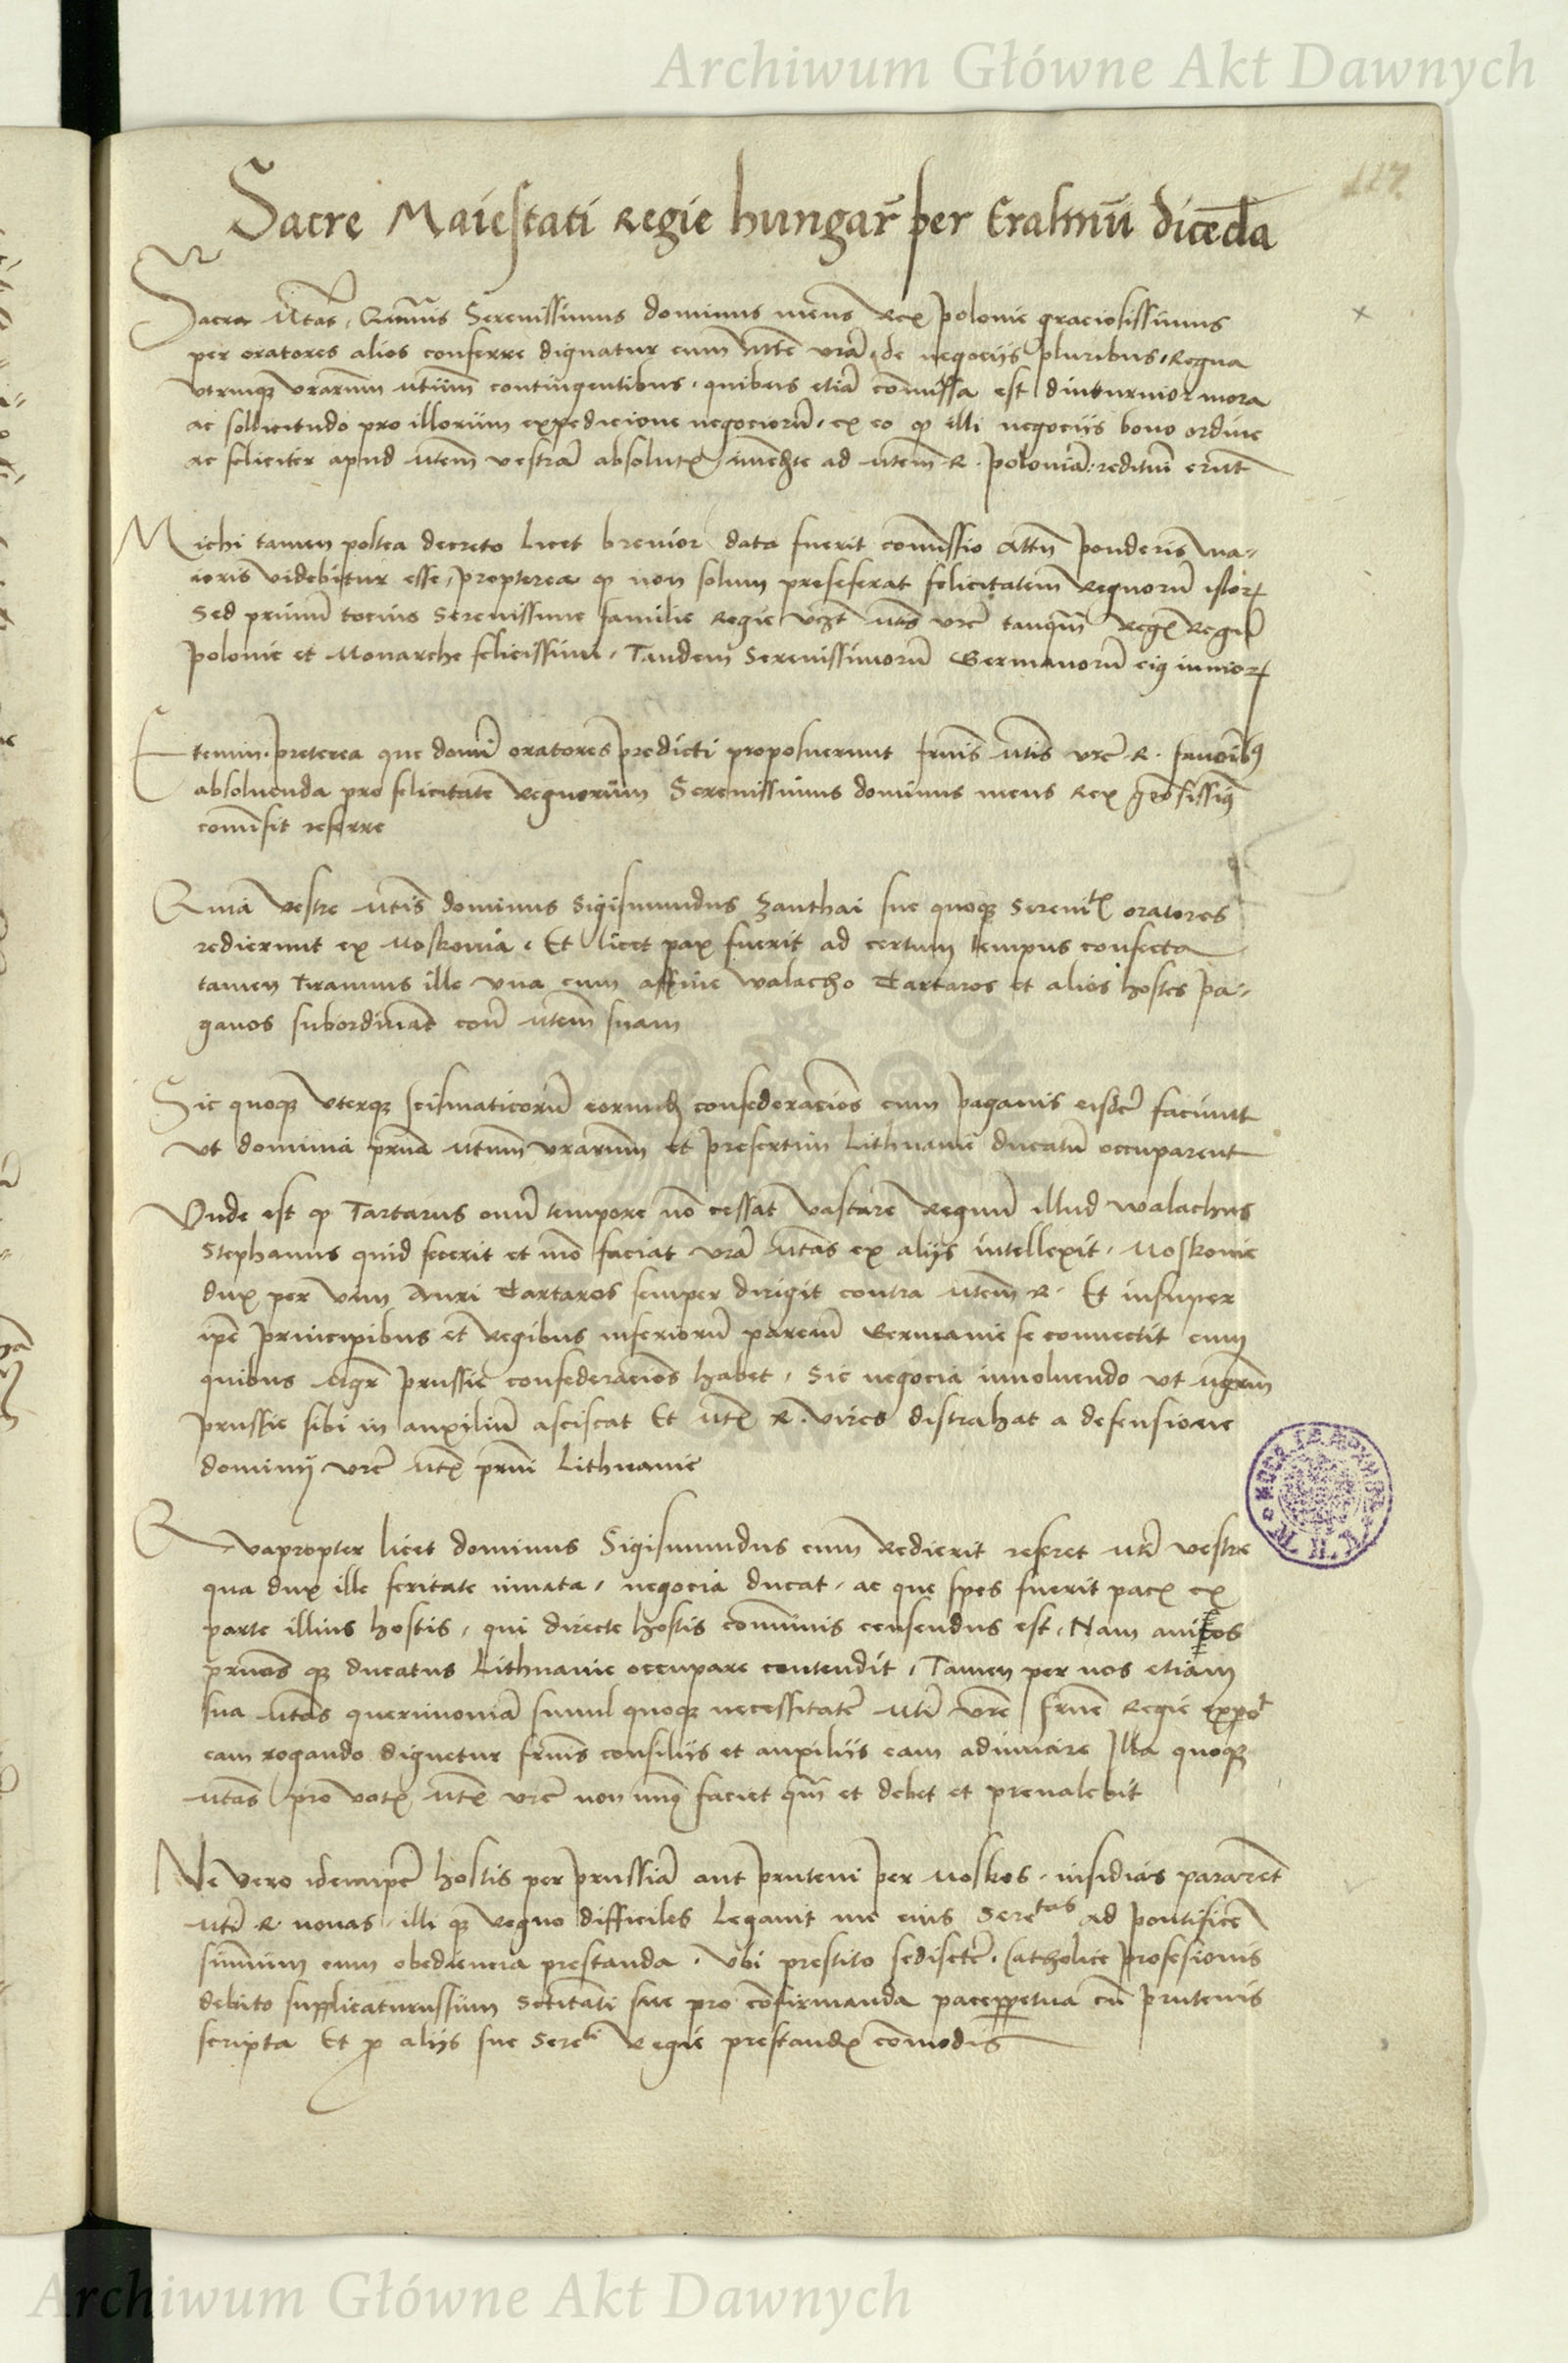 Archiwum Główne Akt Dawnych
117
Sacre Maiestati Regie hungar̄ per Erasmū dicēda
Sacra Mtas, Quāuis Serenissimus dominus meus Rex polonie graciosissimus
per oratores alios conferre dignatur cum Mte vrā, de negocijs pluribus, Regna
vtriusqꝫ vrarum Mtum contingentibus, quibus etiā cōmissa est diuturnior mora
ac sollicitudo pro illorum expedicione negociorū, ex eo ꝙ illi negocijs bono ordine
ac feliciter apud Mtem vestrā absolutꝭ ad Mtem R. poloniā redituri erūt
Michi tamen postea decreto licet breuior data fuerit cōmissio Attn̄ ponderis ma-
ioris videbitur esse, propterea ꝙ non solum preseferat felicitatem Regnorū istoꝝ
Sed primū tocius Serenissime familie Regie vꝫt Mtis vrē tanqꝫ Regꝭ Regni
polonie et Monarche felicissimi, Tandem Serenissimorū Germanorū eiꝯ iunioꝝ
Etenim preterea que domī oratores predicti proposuerunt frnis Mtis vrē R. fauoribꝯ
absoluenda pro felicitate Regnorum Serenissimus dominus meus Rex grōsissimꝯ
comisit referre
Quia vestre Mtis dominus Sigismundus Zanthai sue quoqꝫ Serenitꝭ oratores
redierunt ex Moskouia, Et licet pax fuerit ad certum tempus confecta
tamen Tirannus ille vna cum affine walacho Tartaros et alios hostes pa-
ganos subordinant contra Mtem suam
Sic quoqꝫ vterqꝫ scismaticorū eorundem confederacōes cum paganis eisdē faciunt
vt dominia prna Mtum vrarum et presertim Lithuanie ducatū occuparent
Vnde est ꝙ Tartarus omī tempore nō cessat vastare Regnū illud walachus
Stephanus quid fecerit et mō faciat vrā Mtas ex alijs intellexit, Moskouie
dux per vim Auri Tartaros semper dirigit contra Mtem R. Et insuper
ipē principibus et Regibus inferiorū parcium Germanie se connectit cum
quibus Mgr̄ prussie confederacōes habet, Sic negocia inuoluendo vt Mgrm̄
prussie sibi in auxiliū asciscat Et Mtꝭ R. vires distrahat a defensione
dominij vrē Mtꝭ prni Lithuanie
Quapropter licet dominus Sigismundus cum Redierit referet Mti vestre
qua dux ille feritate innata, negocia ducat, ac que spes fuerit pacꝭ ex
parte illius hostis, qui directe hostis cōmunis censendus est, Nam auitos
prnos qꝫ ducatus Lithuanie occupare contendit, Tamen per nos etiam
sua Mtas querimoniā simul quoqꝫ necessitatē Mti vrē frne Regie expōt
eam rogando dignetur frnis consilijs et auxilijs eam adiuuare Illa quoqꝫ
Mtas pro votꝭ Mtꝭ vrē non minꝯ faciet qm̄ et debet et preualebit
Ne vero idemipē hostis per prussiā aut pruteni per Moskos, insidias pararent
Mti R. nouas, illi qꝫ Regno difficiles Legauit me eius Seretas ad pontificē
summum cum obediencia prestanda. Vbi prestito Catholice profesionis
debito supplicaturussum Sctitati sue pro cōfirmanda pace perpetua cū prutenis
scripta Et ꝓ alijs sue Sereti Regie prestandꝭ cōmodis
Archiwum Główne Akt Dawnych